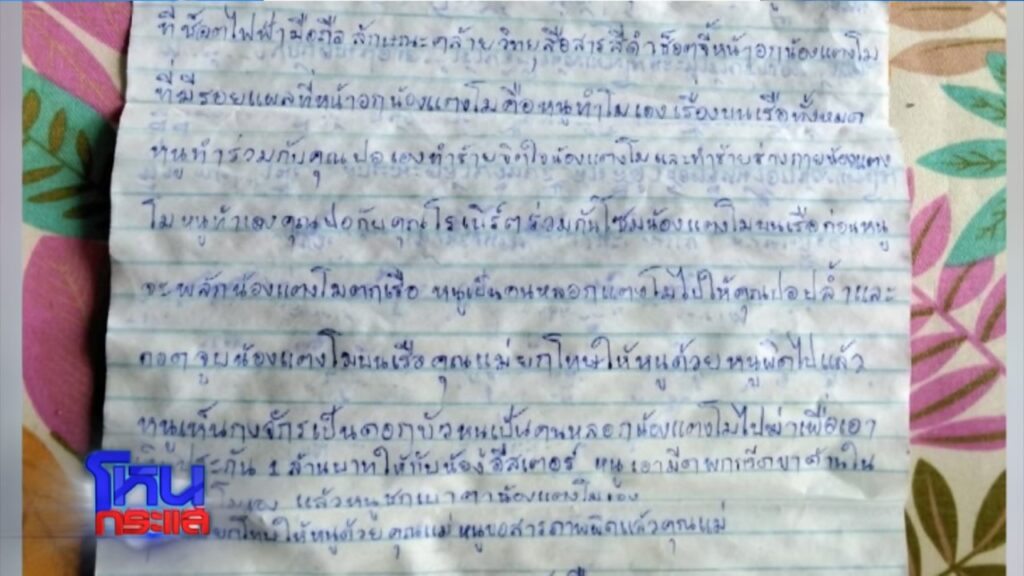 ที่ช็อตไฟฟ้ามือถือ ลักษณะคล้ายวิทยุสื่อสารสีดำช็อตจี้หน้าอกน้องแตงโม
ที่มีรอยแผลที่หน้าอกน้องแตงโมคือหนูทำโมเอง เรื่องบนเรือทั้งหมด
หนูทำร่วมกับคุณปอเองทำร้ายจิตใจน้องแตงโม และทำร้ายร่างกายน้องแตง
โมหนูทำเองคุณปอกับคุณโรเบิร์ตร่วมกันโซมน้องแตงโมบนเรือก่อนหนู
จะพลักน้องแตงโมตกเรือ หนูเป็นคนหลอกแตงโมไปให้คุณปอปล้ำและ
กอดจูบน้องแตงโมบนเรือคุณแม่ยกโทษให้หนูด้วยหนูผิดไปแล้ว
หนูเห็นกงจักรเป็นดอกบัวหนูเป็นคนหลอกน้องแตงโมไปฆ่าเพื่อเอา
ประกัน 1 ล้านบาทให้กับน้องอีสเตอร์ หนูเอามีดพกกรีดขาด้านใน
โมเอง แล้วหนูชกเบาตาน้องแตงโมเอง
ยกโทษให้หนูด้วยคุณแม่ หนูขอสารภาพผิดแล้วคุณแม่
โหนกระแส